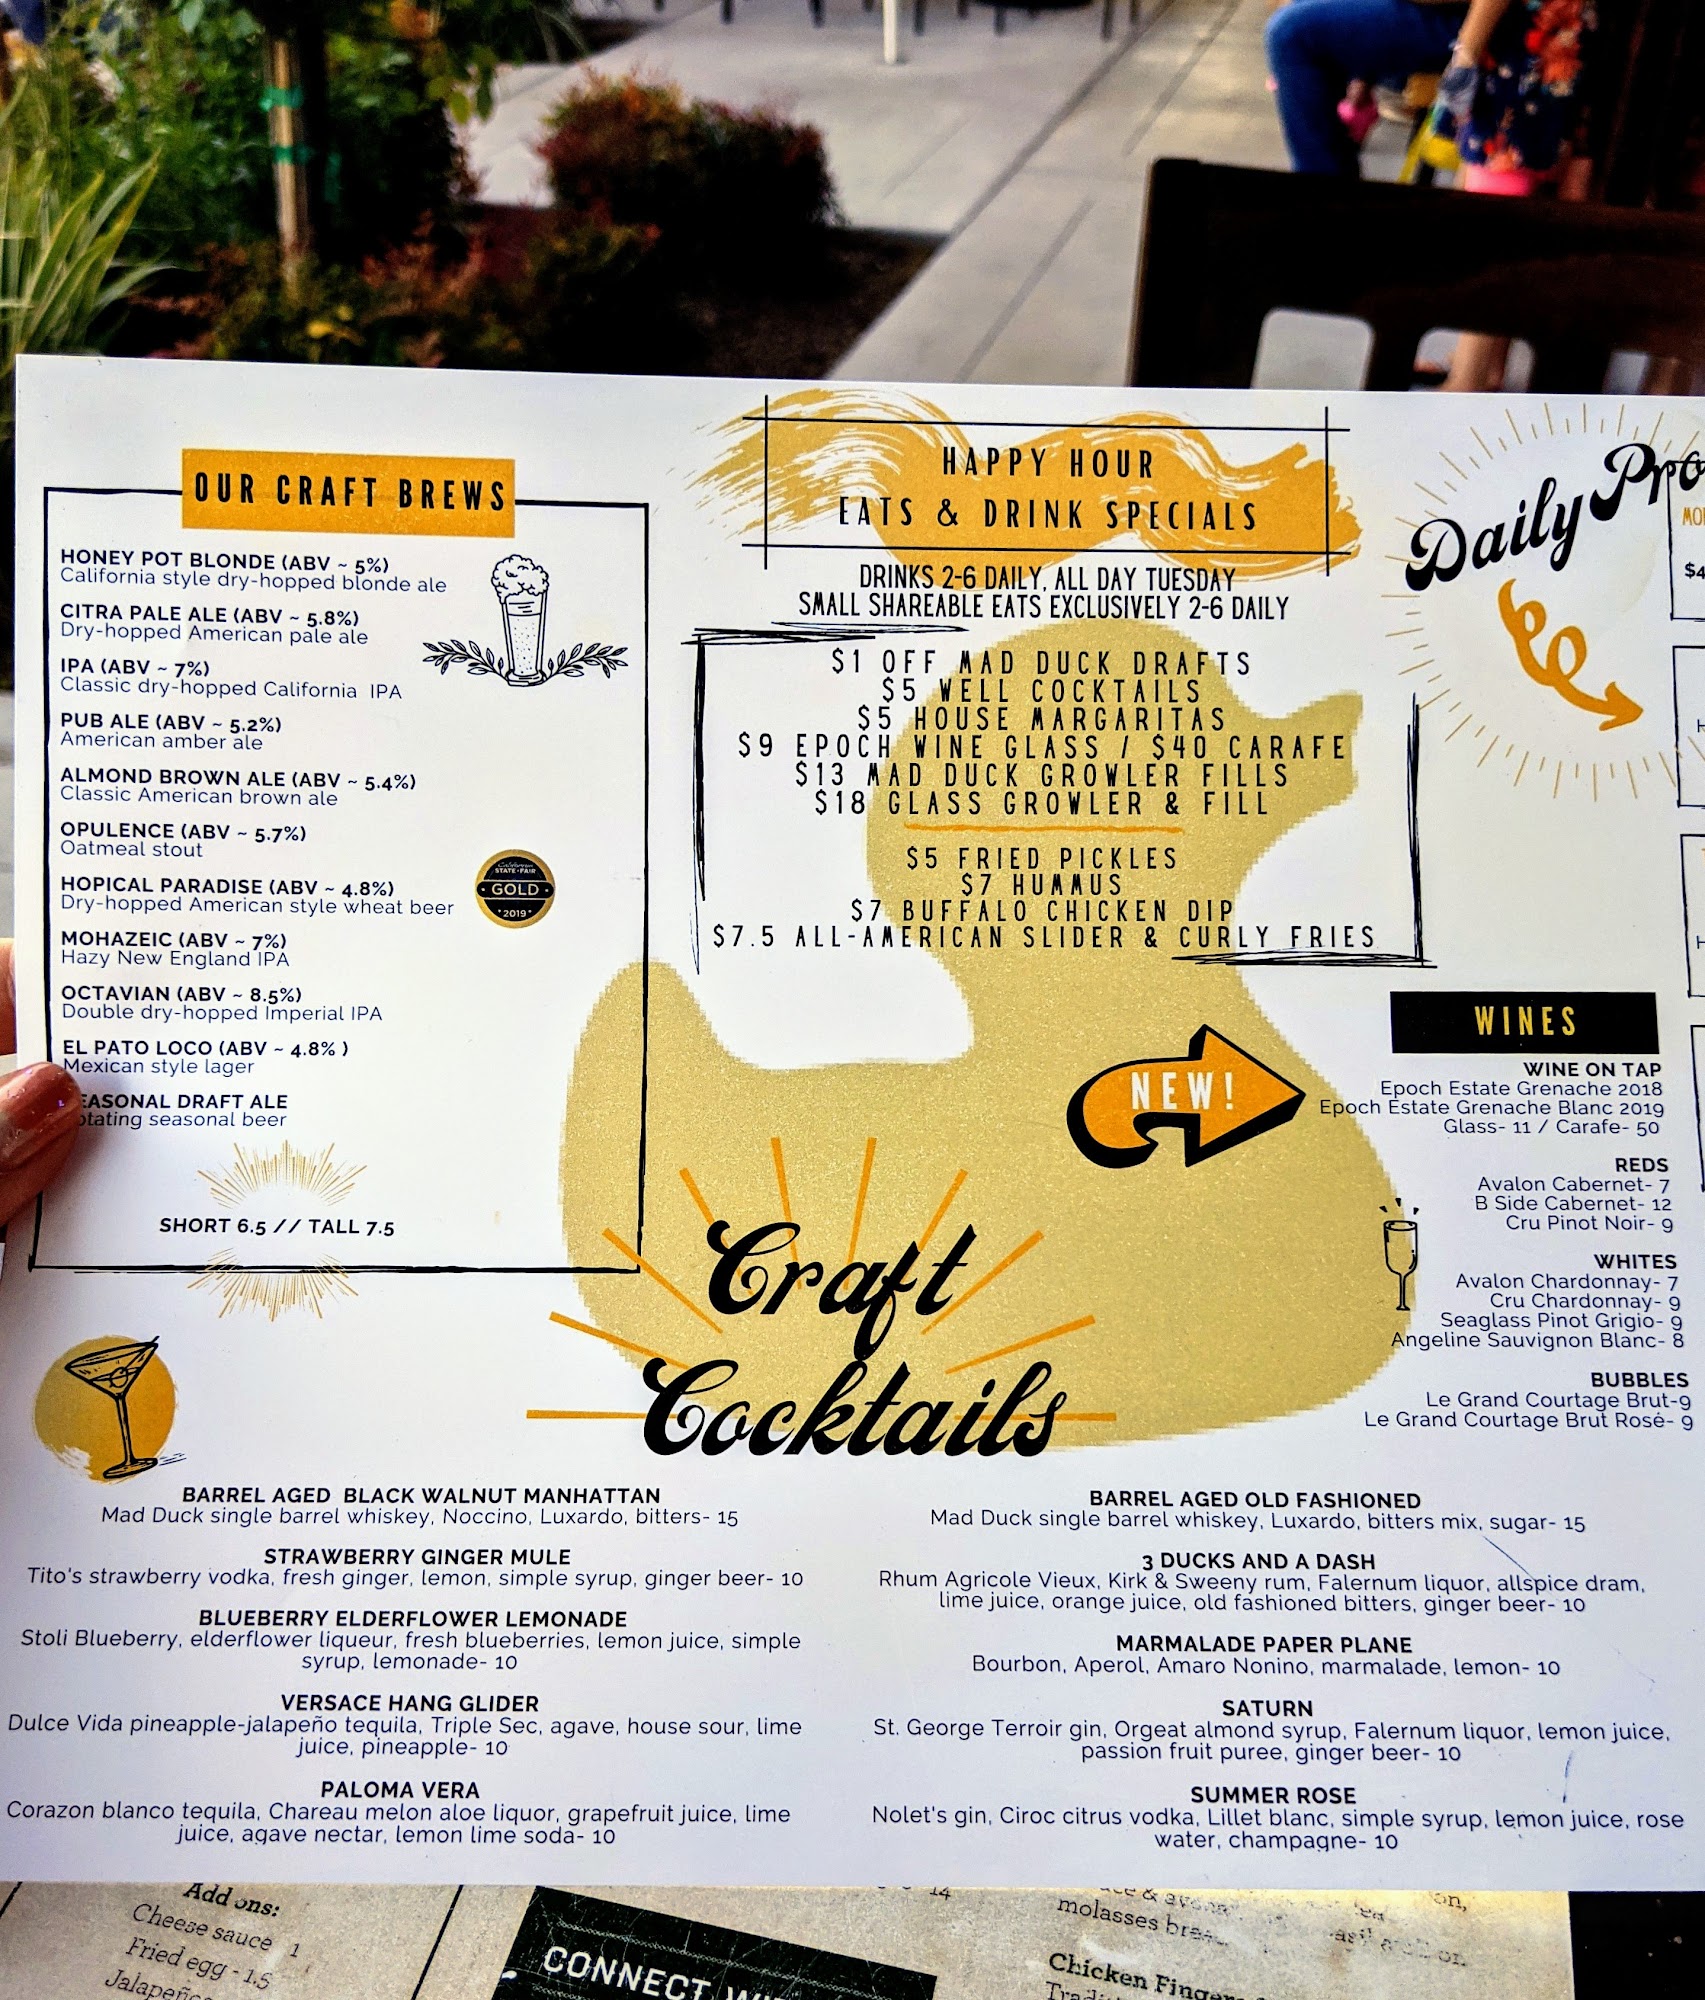 OUR CRAFT BREWS
HONEY POT BLONDE (ABV ~ 5%)
California style dry-hopped blonde ale
CITRA PALE ALE (ABV ~ 5.8%)
Dry-hopped American pale ale
IPA (ABV ~ 7%)
Classic dry-hopped California IPA
PUB ALE (ABV ~ 5.2%)
American amber ale
ALMOND BROWN ALE (ABV ~ 5.4%)
Classic American brown ale
OPULENCE (ABV ~ 5.7%)
Oatmeal stout
HOPICAL PARADISE (ABV ~ 4.8%)
Dry-hopped American style wheat beer
California
STATE FAIR
GOLD
2019
MOHAZEIC (ABV ~ 7%)
Hazy New England IPA
OCTAVIAN (ABV ~ 8.5%)
Double dry-hopped Imperial IPA
EL PATO LOCO (ABV ~ 4.8% )
Mexican style lager
EASONAL DRAFT ALE
otating seasonal beer
SHORT 6.5 // TALL 7.5
HAPPY HOUR
EATS & DRINK SPECIALS
DRINKS 2-6 DAILY, ALL DAY TUESDAY
SMALL SHAREABLE EATS EXCLUSIVELY 2-6 DAILY
$1 OFF MAD DUCK DRAFTS
$5 WELL COCKTAILS
$5 HOUSE MARGARITAS
$9 EPOCH WINE GLASS / $40 CARAFE
$13 MAD DUCK GROWLER FILLS
$18 GLASS GROWLER & FILL
$5 FRIED PICKLES
$7 HUMMUS
$7 BUFFALO CHICKEN DIP
$7.5 ALL-AMERICAN SLIDER & CURLY FRIES
Daily Pro
MO
$4
H
H
NEW!
WINES
WINE ON TAP
Epoch Estate Grenache 2018
Epoch Estate Grenache Blanc 2019
Glass- 11 / Carafe- 50
REDS
Avalon Cabernet- 7
B Side Cabernet- 12
Cru Pinot Noir- 9
WHITES
Avalon Chardonnay- 7
Cru Chardonnay- 9
Seaglass Pinot Grigio- 9
Angeline Sauvignon Blanc- 8
BUBBLES
Le Grand Courtage Brut-9
Le Grand Courtage Brut Rosé- 9
Craft
Cocktails
BARREL AGED BLACK WALNUT MANHATTAN
Mad Duck single barrel whiskey, Noccino, Luxardo, bitters- 15
STRAWBERRY GINGER MULE
Tito's strawberry vodka, fresh ginger, lemon, simple syrup, ginger beer- 10
BLUEBERRY ELDERFLOWER LEMONADE
Stoli Blueberry, elderflower liqueur, fresh blueberries, lemon juice, simple
syrup, lemonade- 10
VERSACE HANG GLIDER
Dulce Vida pineapple-jalapeño tequila, Triple Sec, agave, house sour, lime
juice, pineapple- 10
PALOMA VERA
Corazon blanco tequila, Chareau melon aloe liquor, grapefruit juice, lime
juice, agave nectar, lemon lime soda- 10
BARREL AGED OLD FASHIONED
Mad Duck single barrel whiskey, Luxardo, bitters mix, sugar- 15
3 DUCKS AND A DASH
Rhum Agricole Vieux, Kirk & Sweeny rum, Falernum liquor, allspice dram,
lime juice, orange juice, old fashioned bitters, ginger beer- 10
MARMALADE PAPER PLANE
Bourbon, Aperol, Amaro Nonino, marmalade, lemon- 10
SATURN
St. George Terroir gin, Orgeat almond syrup, Falernum liquor, lemon juice,
passion fruit puree, ginger beer- 10
SUMMER ROSE
Nolet's gin, Ciroc citrus vodka, Lillet blanc, simple syrup, lemon juice, rose
water, champagne- 10
Add ons:
Cheese sauce 1
Fried egg - 1.5
Jalapeño
CONNECT
14
molasses
Chicken Finger